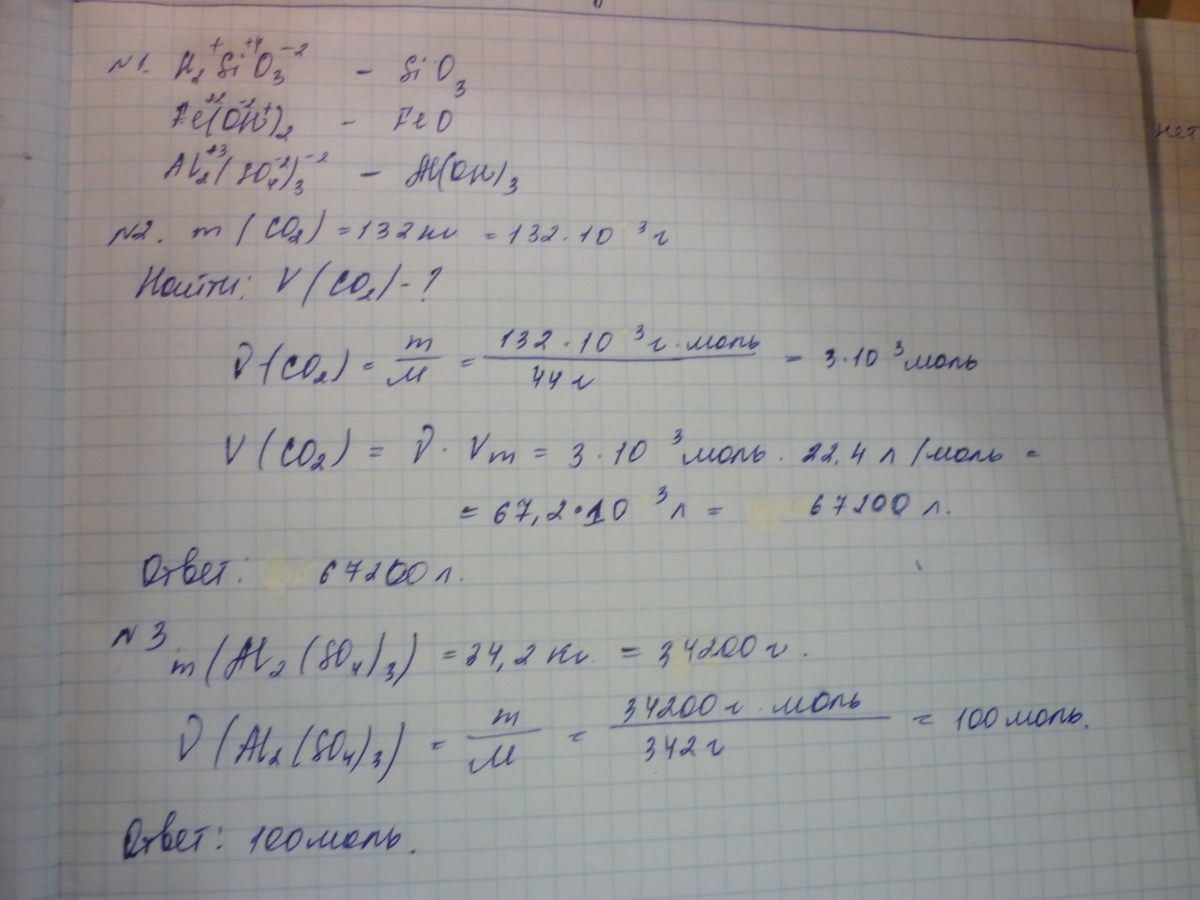 №1. H₂⁺Si⁺⁴O₃⁻² – SiO₃
Fe⁺²(O⁻²H⁺)₂ – FeO
Al₂⁺³(SO₄⁻²)₃⁻² – Al(OH)₃
№2. m(CO₂) = 132 кг = 132·10³ г
Найти: V(CO₂) - ?
ν(CO₂) = m/M = 132·10³ г·моль / 44 г = 3·10³ моль
V(CO₂) = ν·Vm = 3·10³ моль · 22,4 л/моль =
= 67,2·10³ л = 67200 л.
Ответ: 67200 л.
№3 m(Al₂(SO₄)₃) = 34,2 кг. = 34200 г.
ν(Al₂(SO₄)₃) = m/M = 34200 г·моль / 342 г = 100 моль.
Ответ: 100 моль.
нет